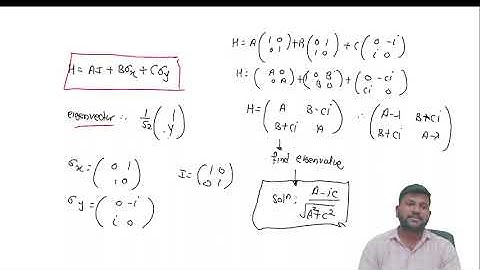 H = AI + Bσx + Cσy
eigenvector :. 1/√2 ( 1
Y )
σx = ( 0 1
1 0 )
I = ( 1 0
0 1 )
σy = ( 0 -i
i 0 )
H = A ( 1 0
0 1 ) + B ( 0 1
1 0 ) + C ( 0 -i
i 0 )
H = ( A 0
0 A ) + ( 0 B
B 0 ) + ( 0 -ci
ci 0 )
H = ( A B-ci
B+ci A )
∴ ( A-λ B+ci
B+ci A-λ )
find eigenvalue
Solⁿ: A-ic
√A²+c²